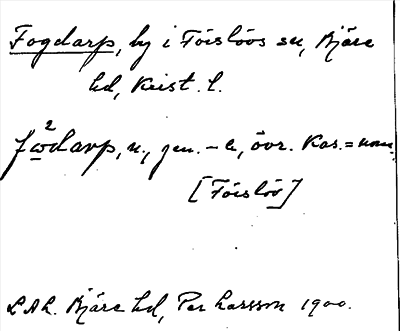 Fogdarp, by i Förslövs sn, Bjäre
hd, Krist. l.
fω²darp, n., gen. – e, övr. kas. = nom.
[Förslöv]
LAL. Bjäre hd, Per Larsson 1900.